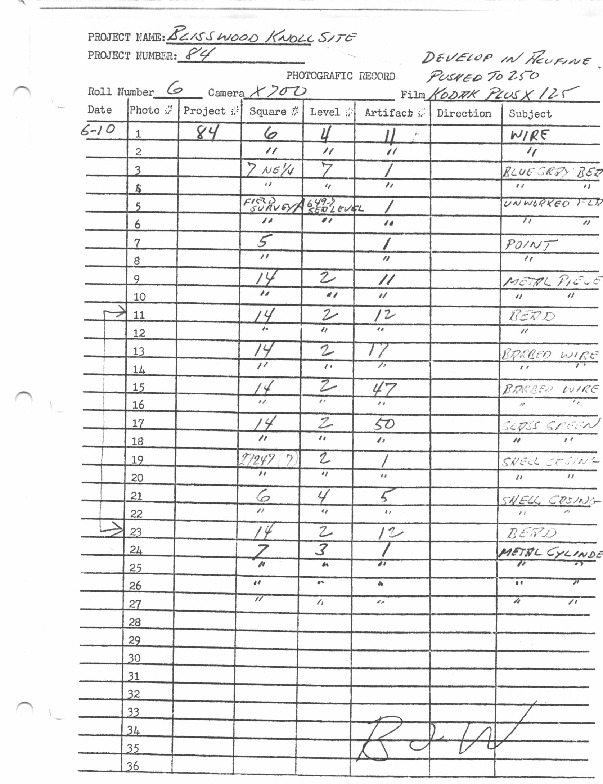 PROJECT NAME: BLISSWOOD KNOLL SITE
PROJECT NUMBER: 84
DEVELOP IN ACUFINE
PHOTOGRAFIC RECORD PUSHED TO 250
Roll Number 6 Camera X700 Film KODAK PLUS X 125
Date Photo # Project # Square # Level # Artifact # Direction Subject
6-10 1 84 6 4 11 WIRE
2 " " " "
3 7 NE 1/4 7 1 BLUE GREY BED
4 " " " " "
5 FIELD SURVEY 1 UNWORKED
6 " " " " "
7 5 1 POINT
8 " " "
9 14 2 11 METAL PIECE
10 " " " " "
11 14 2 12 BEAD
12 " " " "
13 14 2 17 BARBED WIRE
14 " " " " "
15 14 2 47 BARBED WIRE
16 " " " " "
17 14 2 50 GLASS GREEN
18 " " " " "
19 2 1 SHELL CASING
20 " " " " "
21 6 4 5 SHELL CASING
22 " " " " "
23 14 2 12 BEAD
24 7 3 1 METAL CYLINDE
25 " " " " "
26 " " " " "
27 " " " " "
28
29
30
31
32
33
34
35
36